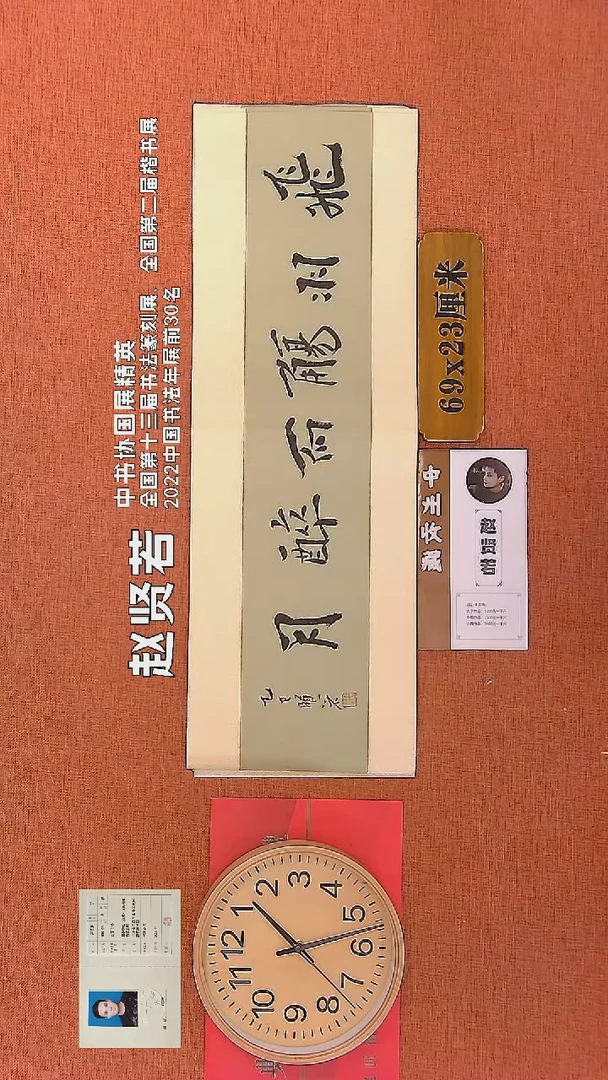 赵贤若
中书协国展精英
全国第十三届书法篆刻展、全国第二届楷书展
2022中国书法年展前30名
飛羽觴而醉月
乙巳賢若
69x23厘米
12
1
2
3
4
5
6
7
8
9
10
11